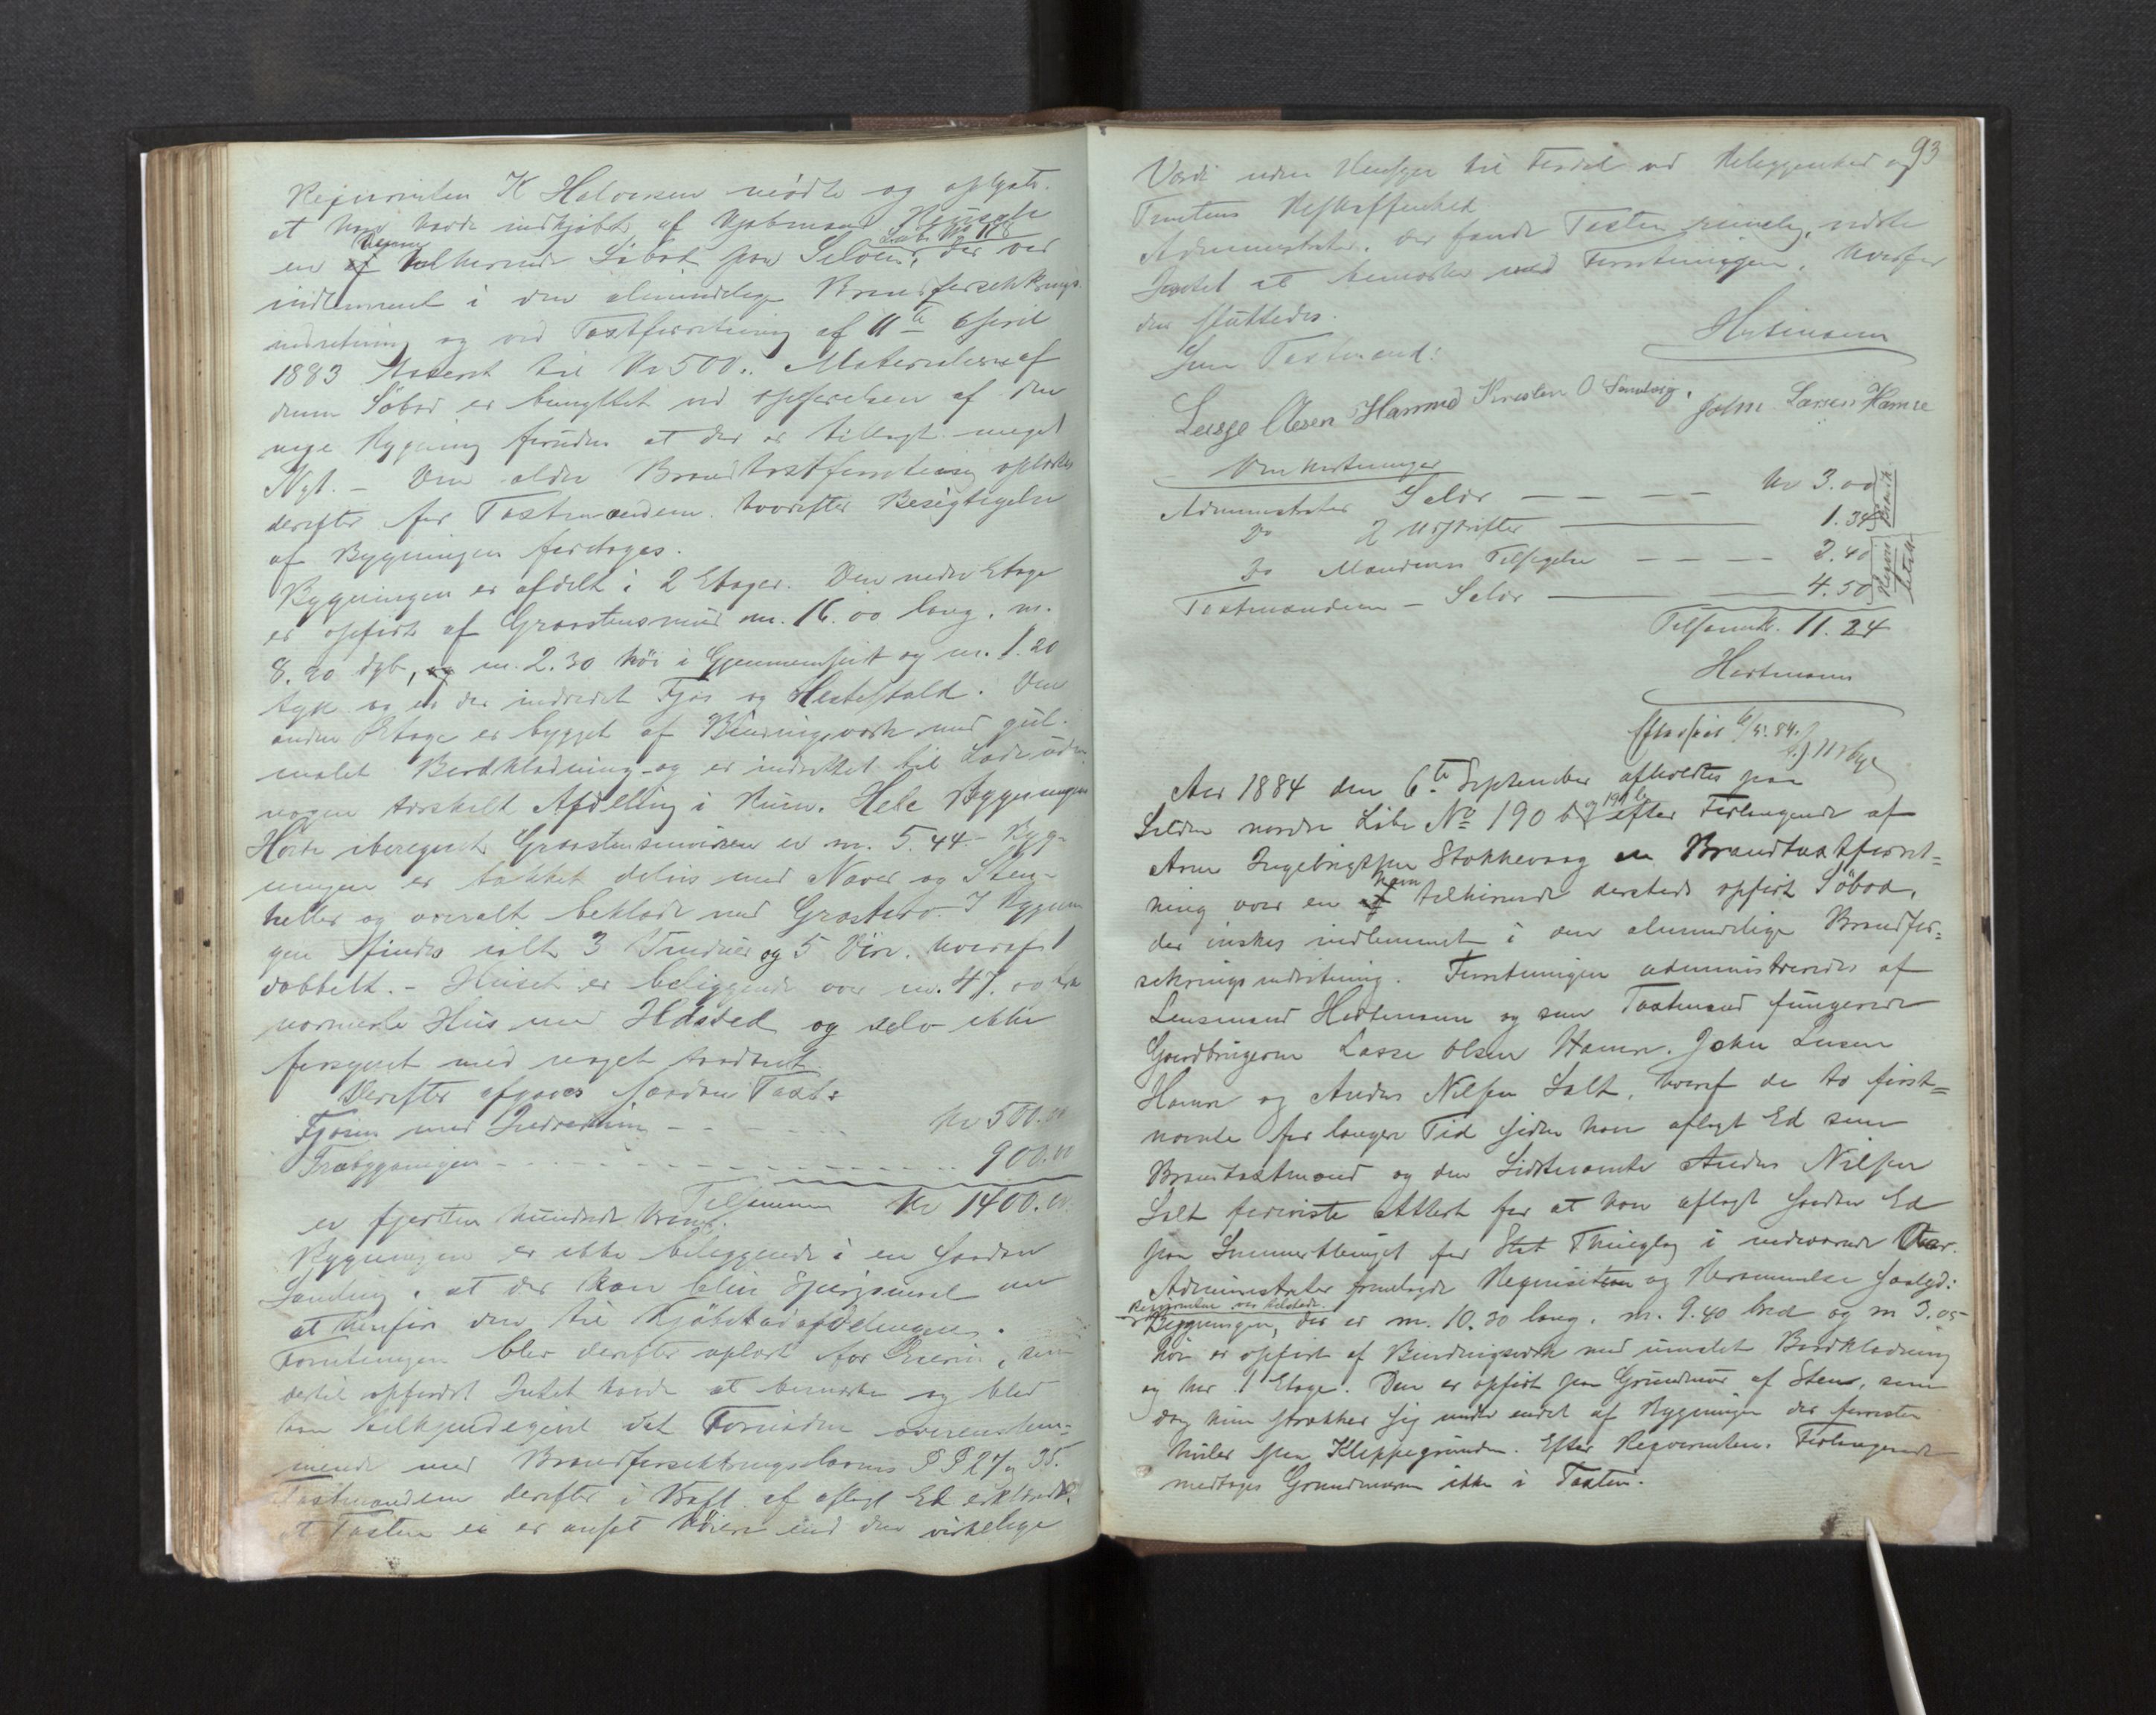 Rejsirenten K Halvorsen mødte og oplyste
at han havde indkjøbt af Kjøbmand
en af denne tilhørende Søbod paa Seløen, Løbe No 118 der var
indlemmet i den almindelige Brandforsikkrings-
indretning og ved Taxtforretning af 11te April
1883 taxeret til Kr 500.. Materialerne af
denne Søbod er benyttet ved opførelsen af den
nye Bygning foruden at der er tillagt meget
Nyt. – Den ældre Brandtaxtforretning oplæstes
derefter for Taxtmændene hvorefter Besigtigelse
af Bygningen foretoges.
Bygningen er afdelt i 2 Etager. Den nedre Etage
er opført af Graastensmur m. 16.00 lang, m.
8.20 dyb, og m. 2.30 høi i Gjennemsnit og m. 1.20
tyk og er der indredet Fjøs og Hestestald. Den
anden Etage er bygget af Bindingsværk med gul-
malet Bordklædning og er indrettet til Lade uden
nogen særskilt Afdeling i Rum. Hele Bygningens
Høide iberegnet Graastensmuren er m. 5.44 – Byg-
ningen er tækket delvis med Næver og Sten-
heller og overalt beklædt med Græstørv. I Bygnin
gen findes ialt 3 Vinduer og 5 Døre, hvoraf 1
dobbelt. – Huset er beliggende over m. 47.00 fra
nærmeste Hus med Ildsted og selv ikke
forsynet med noget saadant
Derefter afgaves saadan Taxt:
Fjøsen med Indredning – – – – Kr 500.00
Træbygningen – – – – – – 900.00
Tilsammen Kr 1400.00
er fjorten hundrede Kroner.
Bygningen er ikke beliggende i en saadan
Samling, at der kan blive Spørgsmaal om
at henføre den til Kjøbstadafdelingen.
Forretningen blev derefter oplæst for Eieren, som
dertil opfordret Intet havde at bemærke og blev
ham tilkjendegivet det Fornødne overensstem-
mende med Brandforsikkringslovens §§ 27 og 35.
Taxtmændene derefter i Kraft af aflagt Ed erklærede,
at Taxten ei er ansat høiere end den virkelige
93
Værdi uden Hensyn til Fordel ved Beliggenhed og
Tomtens Beskaffenhed.
Administrator, der fandt Taxten rimelig, vidste
Intet at bemærke med Forretningen, hvorfor
den sluttedes.
Hartmann
Som Taxtmænd:
Lasse Olsen Hamre Kristen O Sandvig. John Larsen Hamre
Omkostninger
Administrator Salær – – – – Kr 3.00
Do 2 Udskrifter – 1.34
Do Mændenes Tilsigelse – – – – 2.40
Taxtmændene – Salær – 4.50
Tilsamm. 11.24
Hartmann
Aar 1884 den 6te September afholdtes paa
Seløen nordre Løbe No 190 b og 191 b efter Forlangende af
Arne Ingebrigtsen Stokkevaag en Brandtaxtforret-
ning over en af ham tilhørende dersteds opført Søbod,
der ønskes indlemmet i den almindelige Brandfor-
sikringsindretning. Forretningen administreredes af
Lensmand Hartmann og som Taxtmænd fungerede
Gaardbrugerne Lasse Olsen Hamre, John Larsen
Hamre og Anders Nilsen Salt, hvoraf de to først-
nævnte for længere Tid siden have aflagt Ed som
Brandtaxtmænd og den Sidstnævnte Anders Nilsen
Salt foreviste Attest for at have aflagt saadan Ed
paa Sommerthinget for Thinglag i indeværende Aar.
Administrator fremlagde Requisition og Opnævnelse saalyd:
Reqvirenten var tilstede.
Bygningen, der er m. 10.30 lang, m. 9.40 bred og m 3.05
høi er opført af Bindingsværk med umalet Bordklædning
og har 1 Etage. Den er opført paa Grundmur af Sten, som
dog kun strækker sig under endel af Bygningen der forresten
hviler paa Kleppegrunden. Efter Reqvirentens Forlangende
medtages Grundmuren ikke i Taxten.